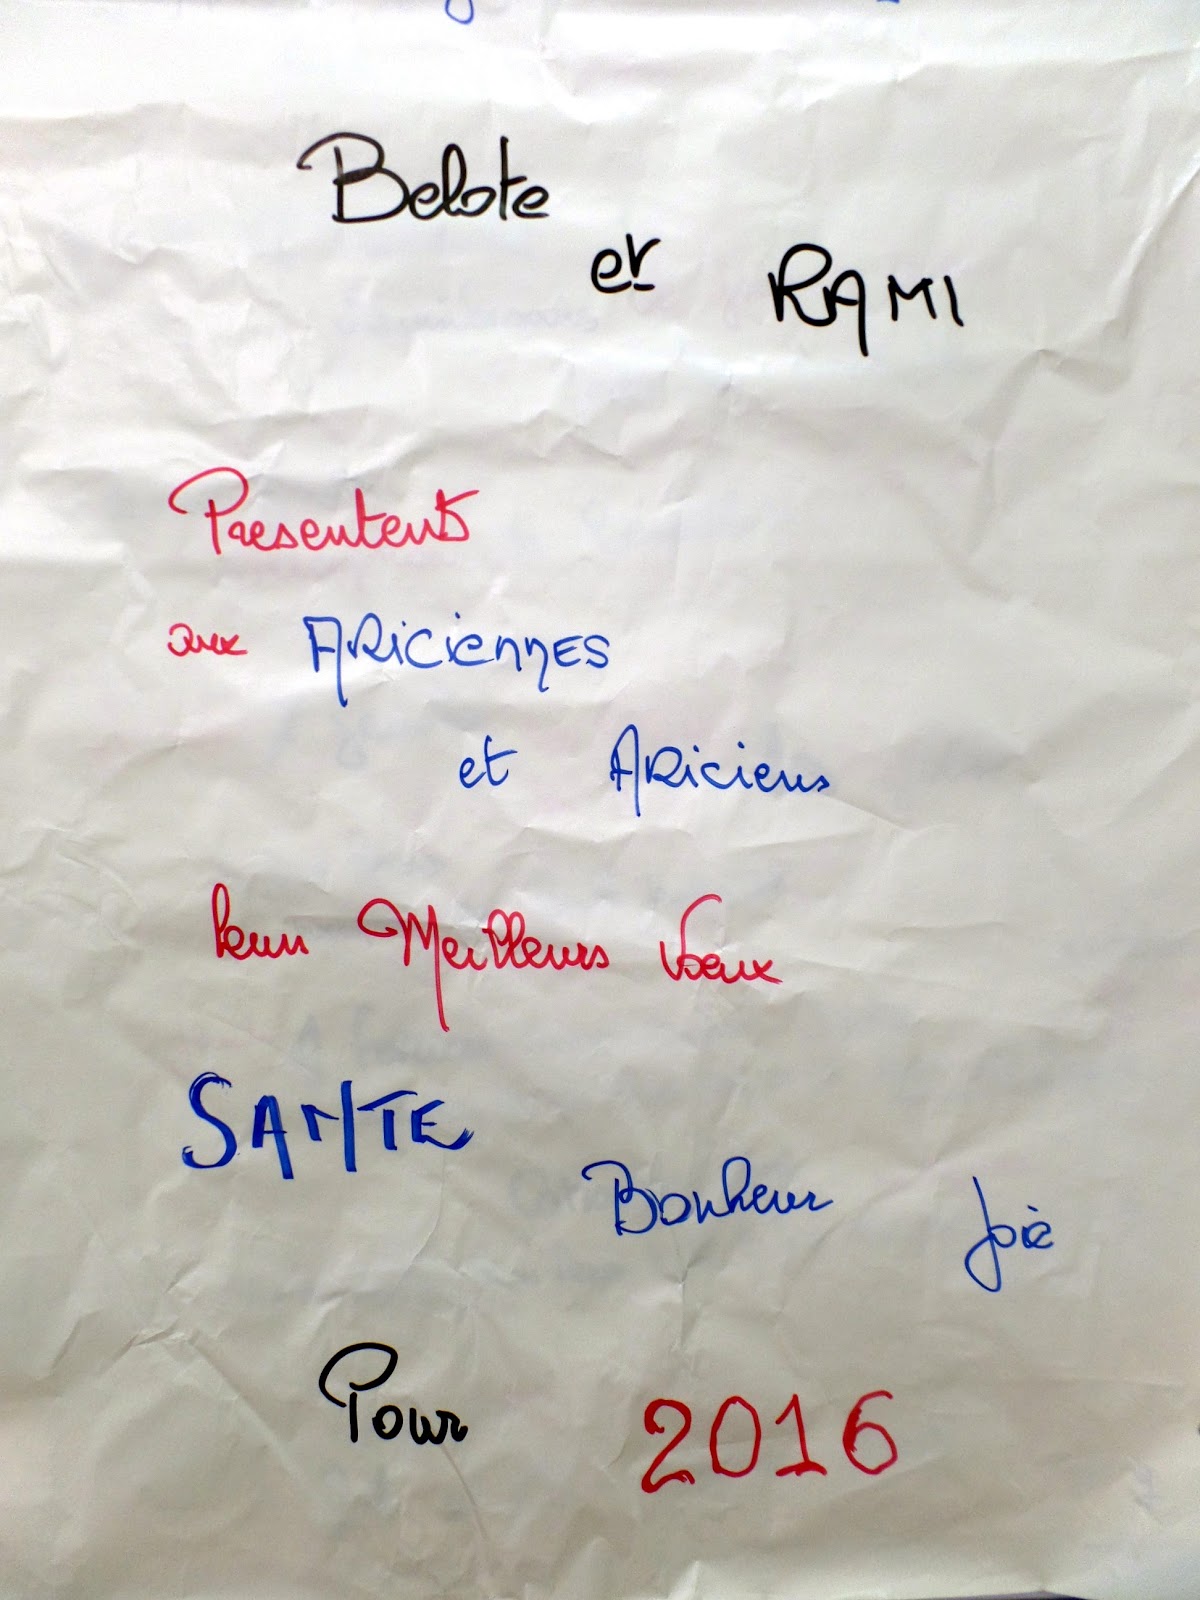 Belote
et RAMI
Presentent
aux ARICIENNES
et ARiciens
leurs Meilleurs Voeux
SANTE
Bonheur Joie
Pour 2016